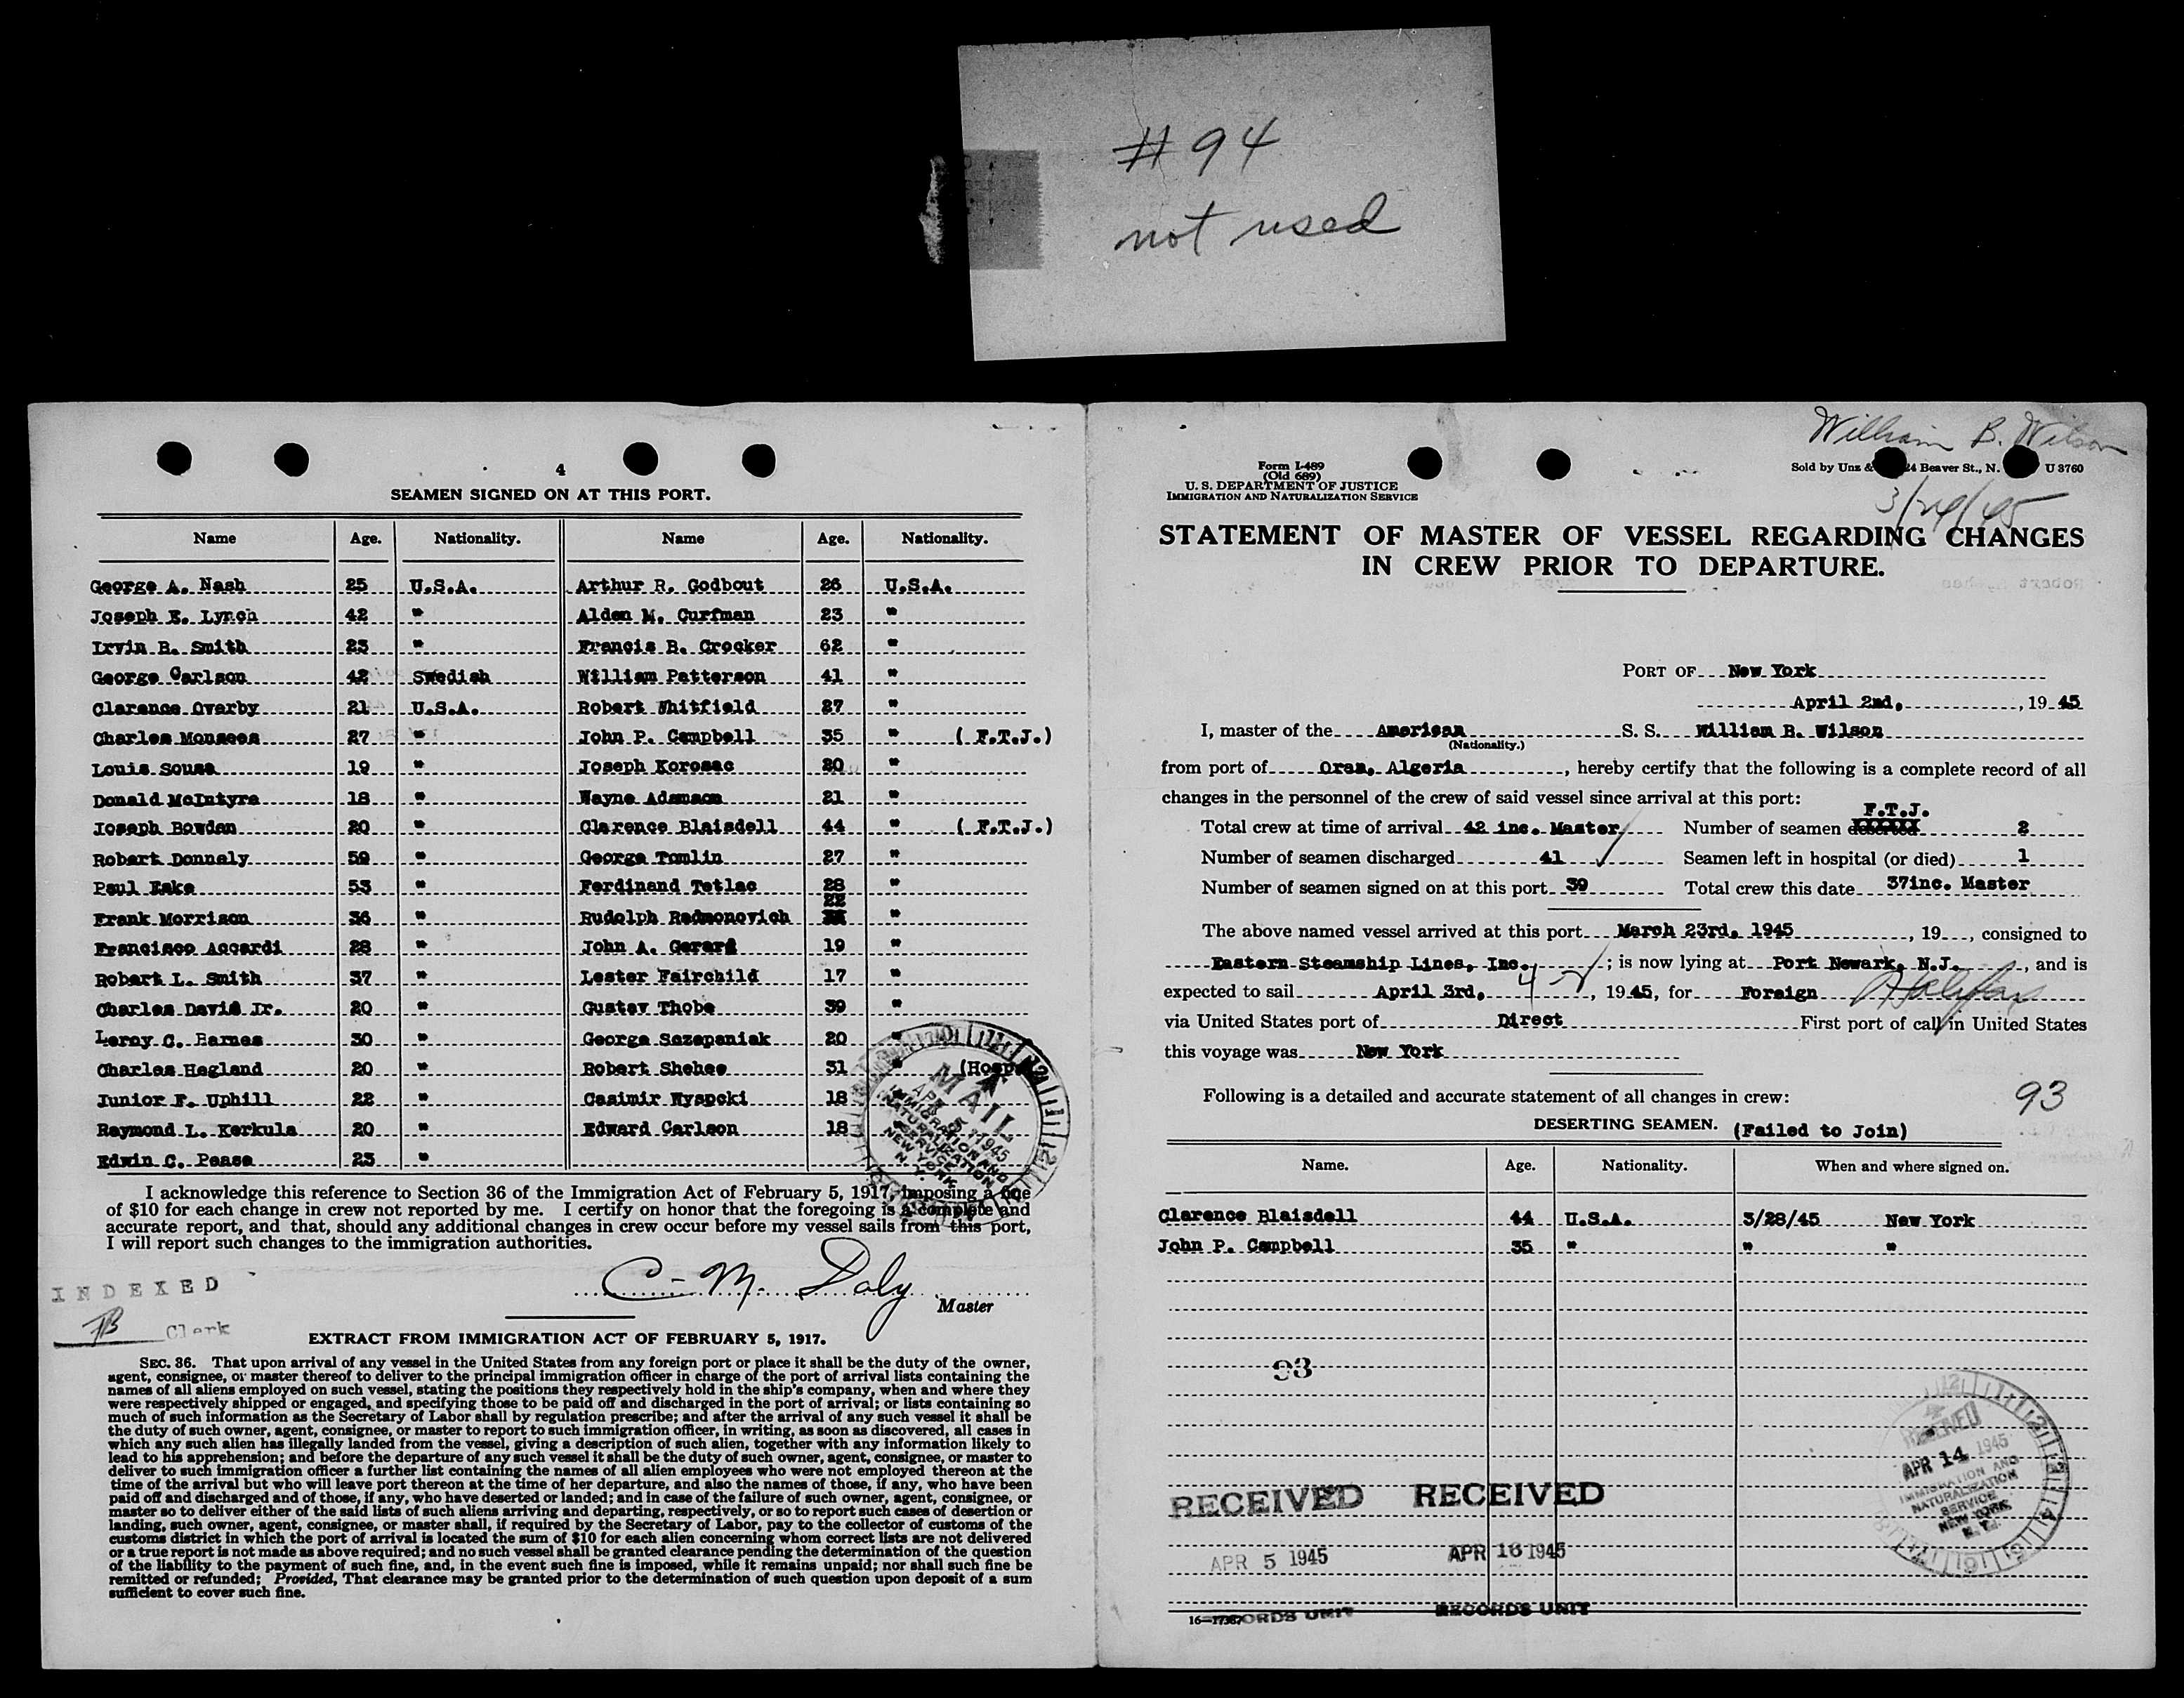 #94
not used
4
SEAMEN SIGNED ON AT THIS PORT.
Name Age. Nationality. Name Age. Nationality.
George A. Nash 25 U.S.A. Arthur R. Godbout 26 U.S.A.
Joseph E. Lynch 42 " Alden M. Curfman 23 "
Irvin B. Smith 23 " Francis B. Crocker 62 "
George Carlson 42 Swedish William Patterson 41 "
Clarence Overby 21 U.S.A. Robert Whitfield 27 "
Charles Monsees 27 " John P. Campbell 35 " ( F.T.J.)
Louis Sousa 19 " Joseph Korosac 20 "
Donald McIntyre 18 " Wayne Adamson 21 "
Joseph Bowden 20 " Clarence Blaisdell 44 " ( F.T.J.)
Robert Donnaly 59 " George Tomlin 27 "
Paul Eake 53 " Ferdinand Tetlac 28 "
Frank Morrison 36 " Rudolph Redmonovich 22 "
Francisco Accardi 28 " John A. Gerard 19 "
Robert L. Smith 37 " Lester Fairchild 17 "
Charles David Jr. 20 " Gustav Thobe 39 "
Leroy C. Barnes 30 " George Szzepaniak 20 "
Charles Hegland 20 " Robert Shehee 31 " (Hosp
Junior F. Uphill 22 " Casimir Wyspcki 18
Raymond L. Kerkula 20 " Edward Carlson 18
Edwin C. Pease 23 "
MAIL
APR 5 1945
IMMIGRATION AND
NATURALIZATION
SERVICE
NEW YORK
N. Y.
I acknowledge this reference to Section 36 of the Immigration Act of February 5, 1917, imposing a fine
of $10 for each change in crew not reported by me. I certify on honor that the foregoing is a complete and
accurate report, and that, should any additional changes in crew occur before my vessel sails from this port,
I will report such changes to the immigration authorities.
C - M. Daly
Master
INDEXED
Clerk
EXTRACT FROM IMMIGRATION ACT OF FEBRUARY 5, 1917.
SEC. 36. That upon arrival of any vessel in the United States from any foreign port or place it shall be the duty of the owner,
agent, consignee, or master thereof to deliver to the principal immigration officer in charge of the port of arrival lists containing the
names of all aliens employed on such vessel, stating the positions they respectively hold in the ship's company, when and where they
were respectively shipped or engaged, and specifying those to be paid off and discharged in the port of arrival; or lists containing so
much of such information as the Secretary of Labor shall by regulation prescribe; and after the arrival of any such vessel it shall be
the duty of such owner, agent, consignee, or master to report to such immigration officer, in writing, as soon as discovered, all cases in
which any such alien has illegally landed from the vessel, giving a description of such alien, together with any information likely to
lead to his apprehension; and before the departure of any such vessel it shall be the duty of such owner, agent, consignee, or master to
deliver to such immigration officer a further list containing the names of all alien employees who were not employed thereon at the
time of the arrival but who will leave port thereon at the time of her departure, and also the names of those, if any, who have been
paid off and discharged and of those, if any, who have deserted or landed; and in case of the failure of such owner, agent, consignee, or
master so to deliver either of the said lists of such aliens arriving and departing, respectively, or so to report such cases of desertion or
landing, such owner, agent, consignee, or master shall, if required by the Secretary of Labor, pay to the collector of customs of the
customs district in which the port of arrival is located the sum of $10 for each alien concerning whom correct lists are not delivered
or a true report is not made as above required; and no such vessel shall be granted clearance pending the determination of the question
of the liability to the payment of such fine, and, in the event such fine is imposed, while it remains unpaid; nor shall such fine be
remitted or refunded; Provided, That clearance may be granted prior to the determination of such question upon deposit of a sum
sufficient to cover such fine.
William B. Wilson
Form I-489
(Old 689)
U. S. DEPARTMENT OF JUSTICE
IMMIGRATION AND NATURALIZATION SERVICE
Sold by Unz & 24 Beaver St., N. U 3760
3/24/45
STATEMENT OF MASTER OF VESSEL REGARDING CHANGES
IN CREW PRIOR TO DEPARTURE.
PORT OF New York
April 2nd, , 19 45
I, master of the American S. S. William B. Wilson
(Nationality.)
from port of Oran, Algeria , hereby certify that the following is a complete record of all
changes in the personnel of the crew of said vessel since arrival at this port:
F.T.J.
Total crew at time of arrival 42 inc. Master Number of seamen deserted 2
Number of seamen discharged 41 Seamen left in hospital (or died) 1
Number of seamen signed on at this port 39 Total crew this date 37inc. Master
The above named vessel arrived at this port March 23rd, 1945 , 19 , consigned to
Eastern Steamship Lines, Inc. ; is now lying at Port Newark, N.J. , and is
expected to sail April 3rd, , 19 45, for Foreign Halifax
via United States port of Direct First port of call in United States
this voyage was New York
Following is a detailed and accurate statement of all changes in crew:
93
DESERTING SEAMEN. (Failed to Join)
Name. Age. Nationality. When and where signed on.
Clarence Blaisdell 44 U.S.A. 3/28/45 New York
John P. Campbell 35 " " "
93
RECEIVED
APR 14 1945
IMMIGRATION AND
NATURALIZATION
SERVICE
NEW YORK
N. Y.
RECEIVED RECEIVED
APR 5 1945 APR 16 1945
16—17387 ORDS UNIT RECORDS UNIT